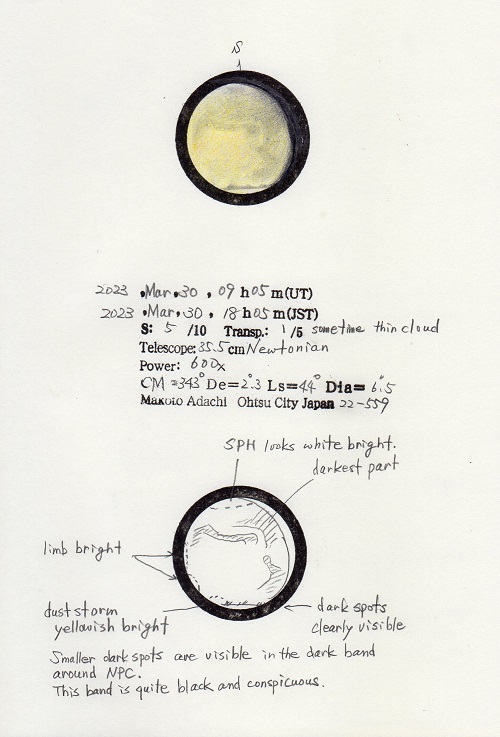 S
2023 .Mar.30 , 09 h 05 m(UT)
2023 .Mar.30 , 18 h 05 m(JST)
S: 5 /10 Transp.: 1/5 sometime thin cloud
Telescope: 35.5 cm Newtonian
Power: 600x
CM =343° De=2°.3 Ls=44° Dia= 6".5
Makoto Adachi Ohtsu City Japan 22-559
SPH looks white bright.
darkest part
limb bright
dust storm
yellowish bright
dark spots
clearly visible
Smaller dark spots are visible in the dark band
around NPC.
This band is quite black and conspicuous.